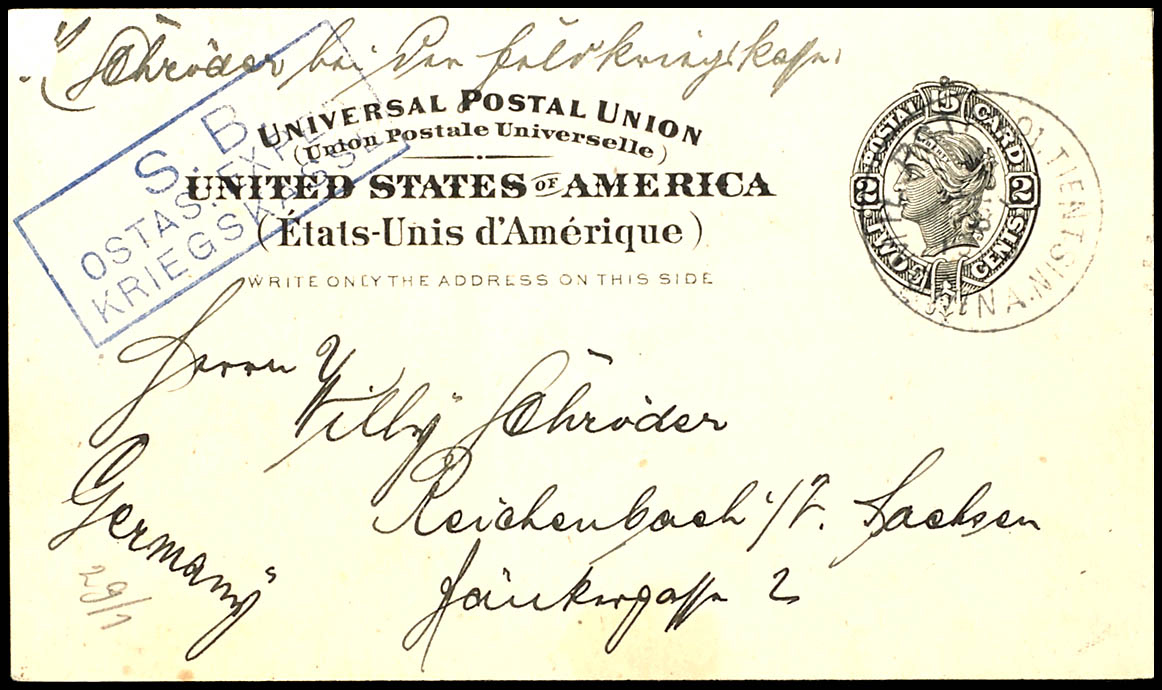 Schröder bei der Feldkriegskasse
S. B.
OSTAS. EXPED.
KRIEGSKASSE
UNIVERSAL POSTAL UNION
(Union Postale Universelle)
UNITED STATES OF AMERICA
(États-Unis d'Amérique)
WRITE ONLY THE ADDRESS ON THIS SIDE
POSTAL CARD
U S
2 2
TWO CENTS
TIENTSIN
Herrn
Willy Schröder
Reichenbach i/V. Sachsen
gasse 2
Germany
29/1